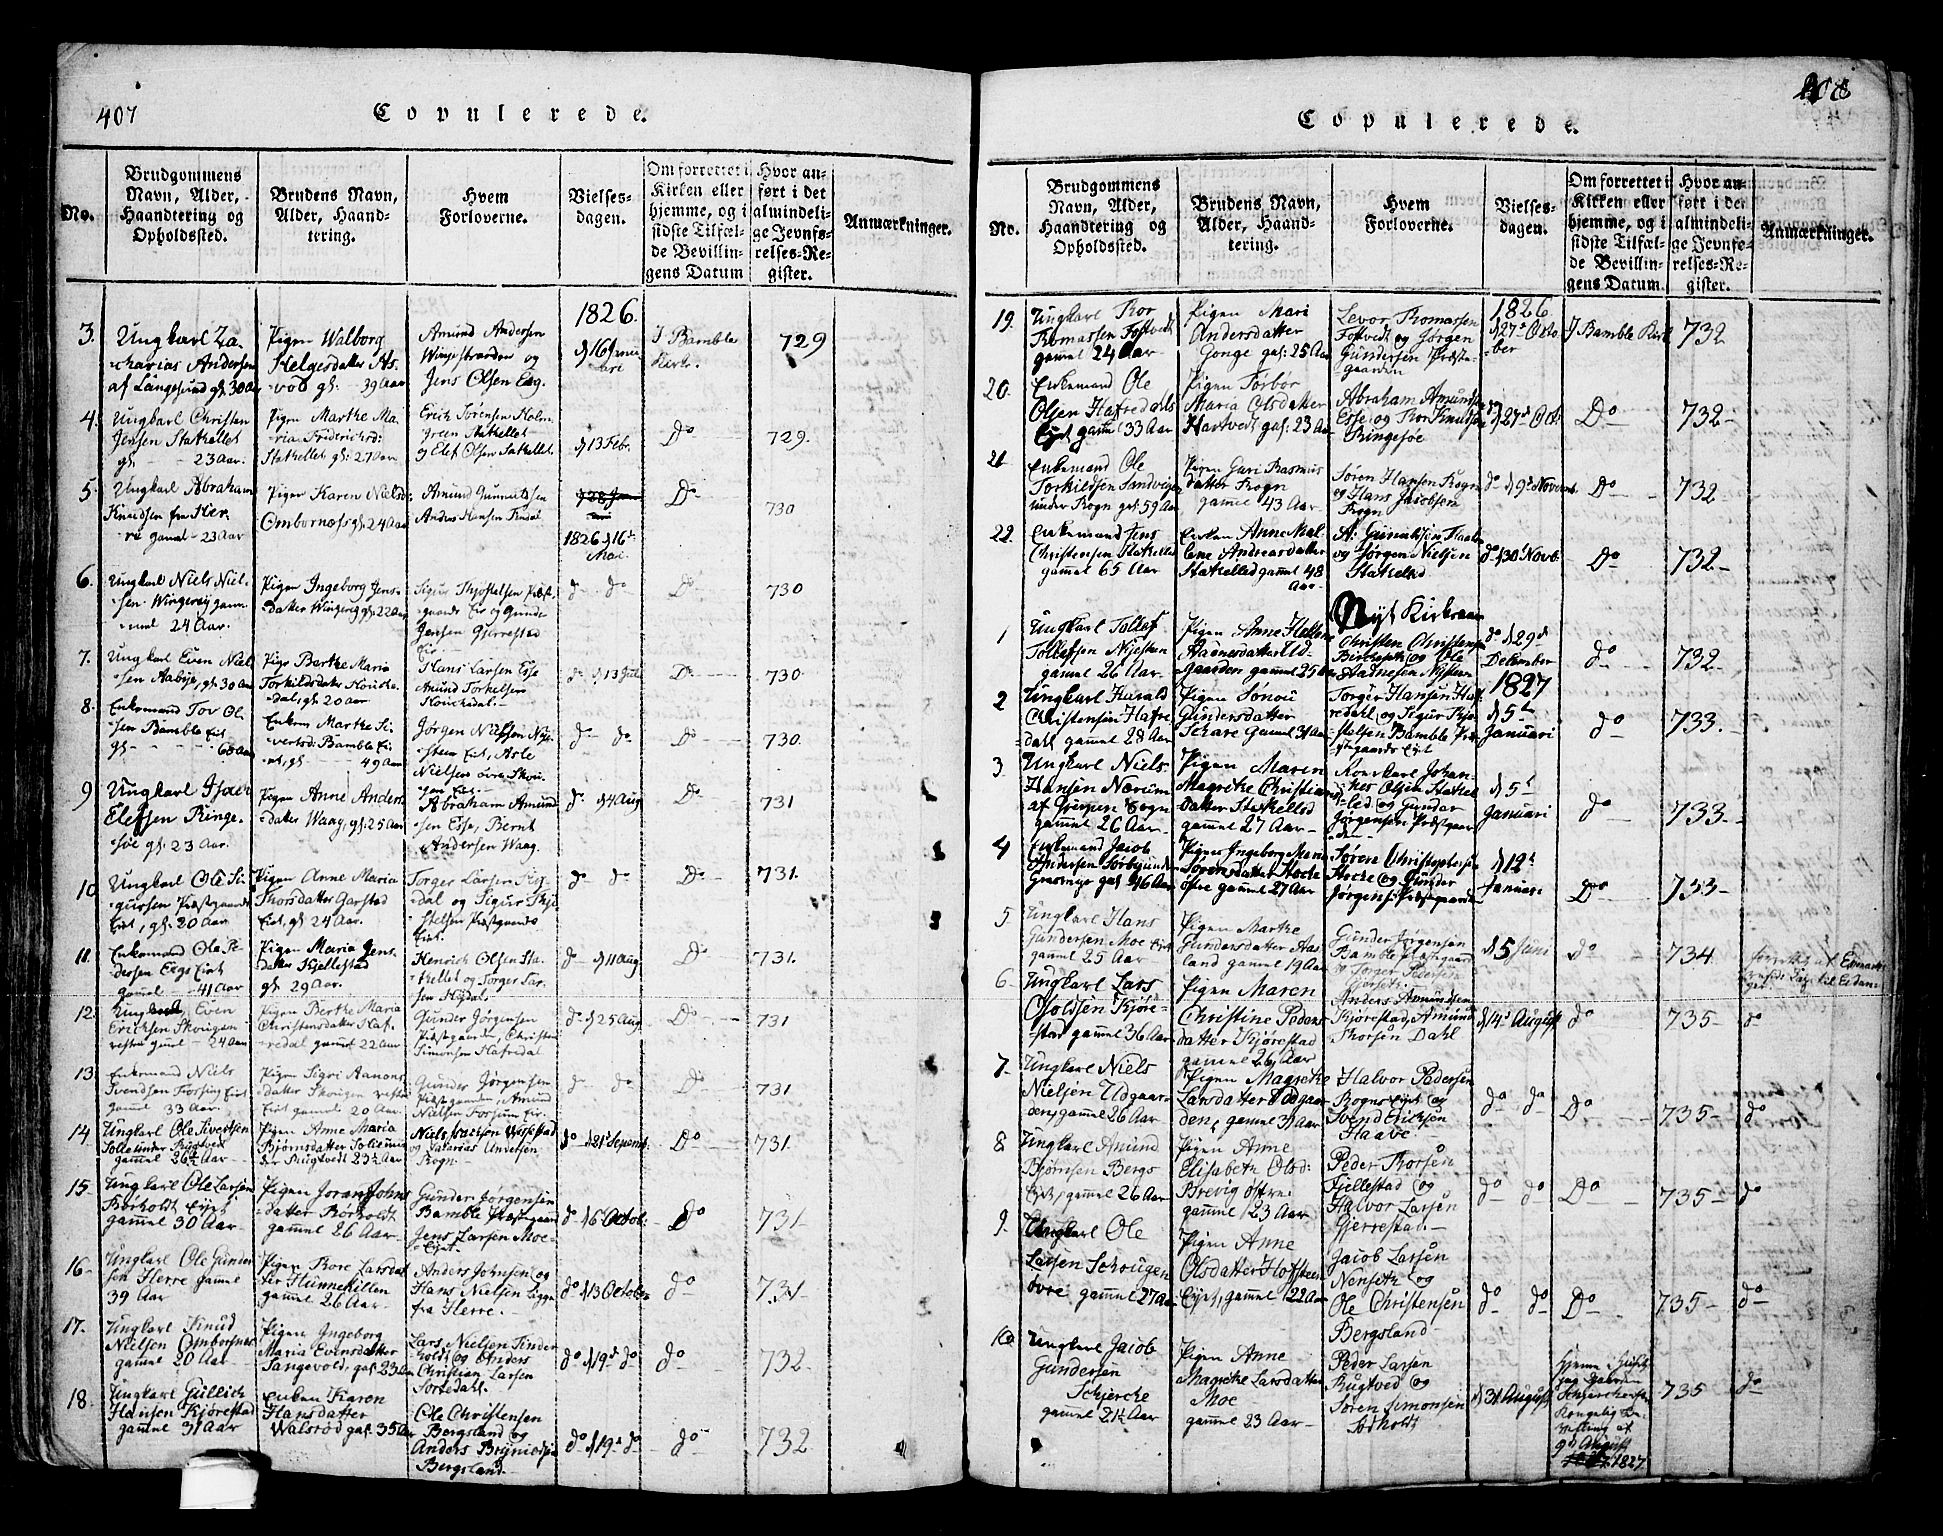 407
Copulerede.
No.
Brudgommens
Navn, Alder,
Haandtering og
Opholdssted.
Brudens Navn,
Alder, Haand-
tering.
Hvem
Forloverne.
Vielses-
dagen.
Om forrettet i
Kirken eller
hjemme, og i
sidste Tilfæl-
de Bevillin-
gens Datum
Hvor an-
ført i det
almindeli-
ge Jevnfø-
relses-Re-
gister.
Anmærkninger.
3.
Ungkarl Za-
charias Andersen
af Langesund gl. 30 Aar
Pigen Walborg
Helgesdatter
39 Aar
Amund Andersen
Wingestranden og
Jens Olsen Eeg.
1826.
d 16 Janu-
ari
I Bamble
Kirke.
729
4.
Ungkarl Christen
Jensen Stathellet
gl. 23 Aar.
Pigen Marthe Ma-
ria Fridrichsd:
Stathellet gl: 27 Aar.
Erich Sørensen Holm-
green Stathellet
og Elef Olsen Stathellet.
d 13 Febr.
Do
729.
5.
Ungkarl Abraham
Knudsen fra Her-
re gamel 23 Aar
Pigen Karen Nielsd:
Ombornæs gl. 24 Aar
Amund Gunnildsen
Anders Hansen Findal
1826 d 16de
Mai
Do
730
6.
Ungkarl Niels Niel-
sen Wingereig gam-
mel 24 Aar.
Pigen Ingeborg Jens-
datter Wingereig gl. 22 Aar
Sigur Thjostelsen Præst-
gaards Eie og Gunde
Jensen Gjerrestad
do do
Do
730
7.
Ungkarl Even Niel-
sen Aabye, gl. 30 Aar
Pige Berthe Maria
Torkildsdatter Houcke-
dal, gl. 20 aar
Hans Larsen Esse
Amund Torkelsen
Houckedal.
do d 13 Juli
Do
730.
8.
Enkemand Tov Ol-
sen Bamble Eiet
gl. 68 Aar
Enken Marthe Si-
vertsd: Bamble Ei-
et, gl. 49 Aar
Jørgen Nilssen Nye-
steen Eiet, Asle
Nielsen øvre Skou-
gen Eie.
do do
Do
730.
9
Ungkarl Isaac
Elefsen Ringe-
søe gl. 23 Aar.
Pigen Anne Anders-
datter Waag, gl. 25 Aar
Abraham Amund-
sen Esse, Bernt
Andersen Waag.
do d 4 Aug
Do
731
10.
Ungkarl Ole Si-
gursen Præstgaards
Eiet, gl. 20 Aar
Pigen Anne Maria
Thorsdatter Garstad
Eiet, gl. 24 Aar.
Torger Larsen
dal og Sigur Thjo-
stelsen Præstgaards
Eiet.
do do
Do
731.
11.
Enkemand Ole Pe-
dersen Eegs Eiet
gamel 41 Aar
Pigen Maria Jens-
datter Kjellestad
gl. 29 Aar.
Henrich Olsen Sta-
thellet og Torger Lar-
sen Hegdal.
do d 11 Aug
Do
731.
12.
Even
Erichsen Skougen
gamel 24 Aar
Pigen Berthe Maria
Christensdatter Haf-
redal gammel 22 Aar
Gunder Jørgensen
Præstgaarden, Christen
Simonsen Hafredal
do d 25 Aug
Do
731
13.
Enkemand Niels
Svendsen Fossing Eiet
gammel 33 Aar.
Pigen Sigri Aanons-
datter Skougen vestre
Eiet gammel 20 Aar.
Gunder Jørgensen
Præstgaarden, Amund
Nielsen Forsum Eie.
do do
Do
731
14.
Ungkarl Ole Sivertsen
under Rugtved
gammel 26½ Aar
Pigen Anne Maria
Bjørnsdatter
Rugtvedt 23½ Aar
Niels Isachsen
og Zacarias Andersen
Rogn.
do d 8de Septemb.
Do
731.
15.
Ungkarl Ole Larsen
Borholdt Eiet
gammel 30 Aar
Pigen Joran Johns-
datter Borholdt
gammel 26 Aar.
Gunder Jørgensen
Bamble Præstgaard
Jens Larsen Moe-
Eiet.
do d 6 Octob.
Do
731.
16.
Ungkarl Ole Gunder-
sen Herre gammel
39 Aar
Pigen Thore Larsdat-
ter Hunnekillen
gammel 26 Aar.
Anders Johnsen og
Hans Nielsen
fra Herre.
do d 13 Octob.
do
731.
17.
Ungkarl Knud
Nielsen Ombornæs
gammel 20 Aar
Pigen Ingeborg
Maria Evensdatter
Langevold, gal. 23 Aar
Lars Nielsen Finder-
holdt og Anders
Christian Larsen
Sortedahl.
do d 19de do
do
732.
18.
Ungkarl Gullich
Hansen Kjørestad
gammel 31 Aar
Enken Karen
Hansdatter
Walsrød gal. 35 Aar
Ole Christensen
Bergsland og
Anders Brynildsen
Bergsland.
do d 19de do
do
732.
408
Copulerede.
No.
Brudgommens
Navn, Alder,
Haandtering og
Opholdssted.
Brudens Navn,
Alder, Haand-
tering.
Hvem
Forloverne.
Vielses-
dagen.
Om forrettet i
Kirken eller
hjemme, og i
sidste Tilfæl-
de Bevillin-
gens Datum.
Hvor an-
ført i det
almindeli-
ge Jevnfø-
relses-Re-
gister.
Anmærkninger.
19.
Ungkarl Thor
Thomassen Fostvedt
gammel 24 Aar
Pigen Mari
Andersdatter
Gonge gal: 25 Aar
Levor Thomassen
Fostvedt og Jørgen
Gundersen Præst-
gaarden
1826
d 27de Octo-
ber
I Bamble Kirke
732
20.
Enkemand Ole
Olsen Hafredals
Eiet gamel 33 Aar
Pigen Torbør
Maria Olsdatter
Hartvedt gal: 23 Aar
Abraham Amundsen
Esse og Thor Knudsen
Ringesøe
do d 27de Octb.
Do
732
21
Enkemand Ole
Torkilsen Sandvigen
under Rogn gal: 59 Aar
Pigen Guri Rasmus-
datter Rogn
gamel 43 Aar
Søren Hansen Rogn
og Hans Jacobsen
Rogn
do d 9de Novemb.
Do
732
22.
Enkemand Jens
Christensen Stathelled
gammel 65 Aar
Enken Anne Mal-
lene Andreasdatter
Stathelled gammel 48
Aar
A: Gunnildsen
og Jørgen Nielsen
Stathelled
do d 30te Novb.
Do
732
Nyt Kirkeaar
1
Ungkarl Tollef
Tollefsen Nysteen
gammel 26 Aar
Pigen Anne Helene
Aadnesdatter Uld-
gaarden gammel 25 Aar
Christen Christensen
og Ole
Aadnesen Nysteen
do d 29de
December
do
732
2
Ungkarl Harald
Christensen Hafre-
dahl gammel 28 Aar
Pigen
Gundersdatter
Schare gammel 31 Aar
Torger Hansen Haf-
redahl og Sigur Thjo-
stelsen Bamble Præ-
stgaards Eiet
1827
d 5te
Januari
do
733.
3
Ungkarl Niels
Hansen Nærum
af Sogn
gammel 26 Aar
Pigen Maren
Magrethe Christians-
datter Stathelled
gammel 27 Aar
Johan-
nes Olsen Stathel-
led og Gunder
Jørgensen Præstgaar-
den
d 5te
Januari
do
733.
4
Enkemand Jacob
Andersen
gal 46 Aar
Pigen Ingeborg Marie
Sørensdatter Aasche
øfre gammel 27 Aar
Søren Christophersen
Aasche og Gunder
Jørgensen Præstgaarden
d 12te
Januari
Do
733
5
Ungkarl Hans
Gundersen Moe Eiet
gammel 25 Aar
Pigen Marthe
Gundersdatter Aas-
land gammel 19 Aar
Gunder Jørgensen
Bamble Præstgaard
og Torger Pedersen
d 5 Juni
do
734
6
Ungkarl Lars
Osoldsen Kjøre-
stad gammel 36 Aar
Pigen Maren
Christine Peders-
datter Kjørestad
gammel 26 Aar
Anders Amundsen
Kjørestad, Amund
Thorsen Dahl
d 14de August
do
735
do
7
Ungkarl Niels
Nielsen Uldgaar-
den, gammel 26 Aar
Pigen Magrethe
Larsdatter Uldgaar-
den, gammel 31 Aar
Halvor Pedersen
Rogns Eiet og
Svend Erichsen
Haave
do do
Do
735
do
8
Ungkarl Amund
Bjørnsen Bergs
Eiet, gammel 26 Aar
Pigen Anne
Elisabeth Olsd:
Brevig østre
gammel 23 Aar
Peder Thorsen
Fjellestad og
Halvor Larsen
Gjerrestad.
do do
Do
735
do
9.
Ungkarl Ole
Larsen Schougen
øvre gammel 27 Aar
Pigen Anne
Olsdatter Hofsteen
Eiet, gammel 22 Aar
Jacob Larsen
Nenseth og
Ole Christensen
Bergsland
do do
Do
735
do
10
Ungkarl Jacob
Gundersen
Schjerche
gammel 21½ Aar
Pigen Anne
Magrethe Larsdatter
Moe
gammel 23 Aar
Peder Larsen
Rugtved og
Søren Simonsen
Aasholdt
d 31 August
Kongelig Be-
villing af
9de August
1827
735
do